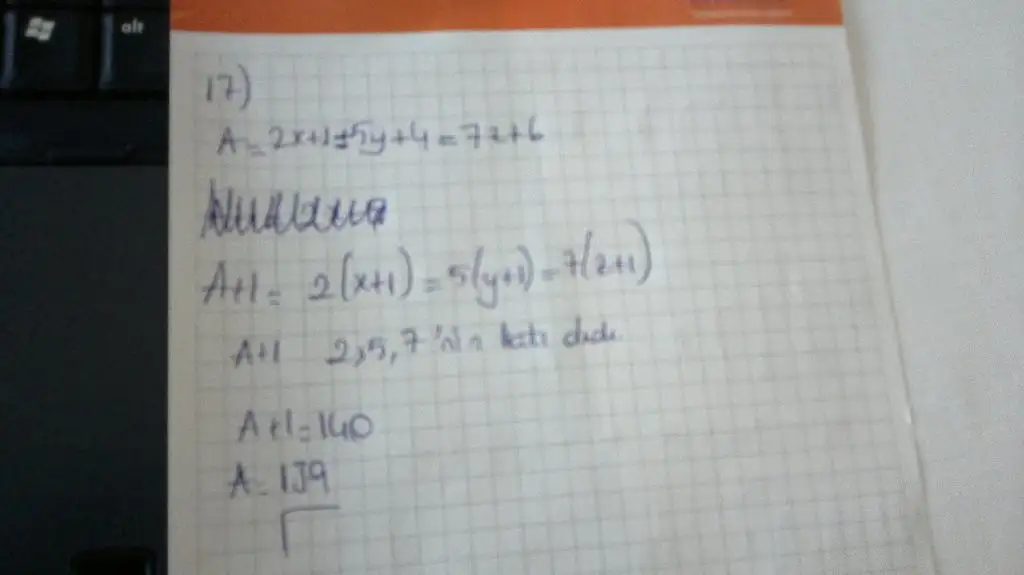 alt
17)
A = 2x+1 = 5y+4 = 7z+6
A+1 = 2(x+1) = 5(y+1) = 7(z+1)
A+1 2,5,7'nin katı dedi.
A+1=140
A = 139